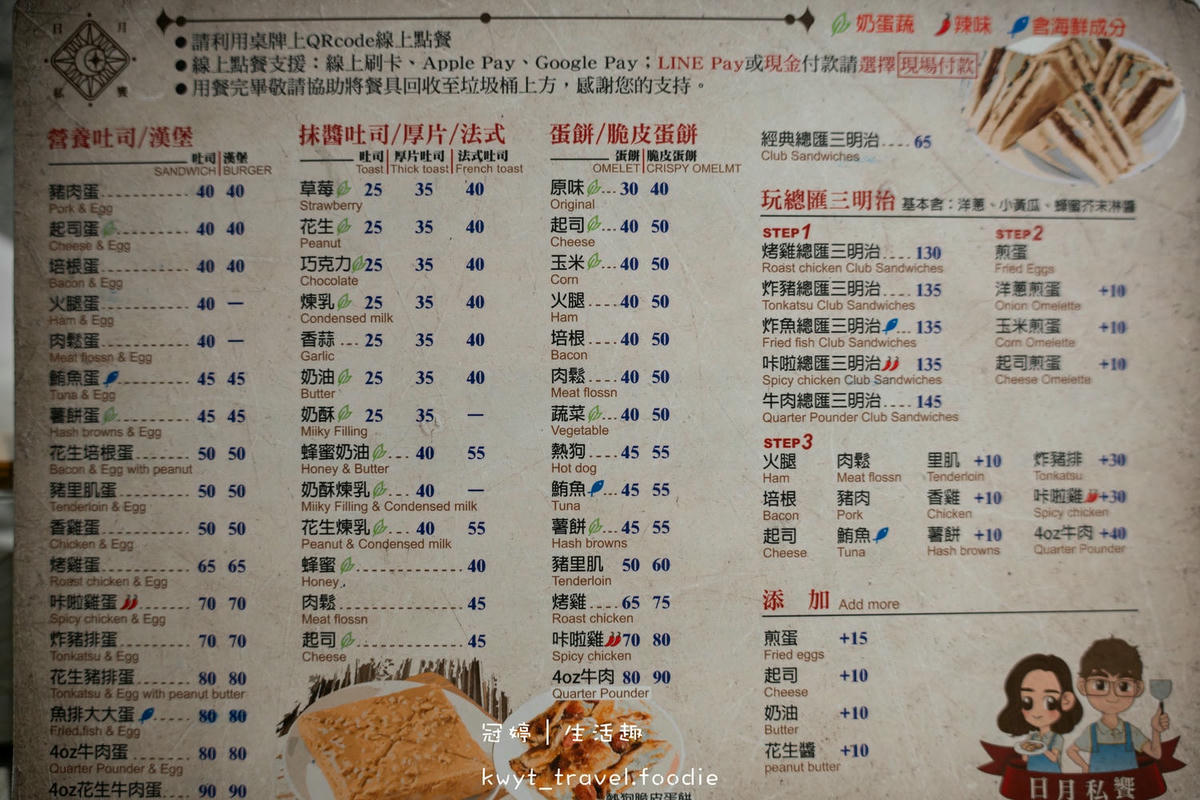 日 月
私 饗
●請利用桌牌上QRcode線上點餐
●線上點餐支援：線上刷卡、Apple Pay、Google Pay；LINE Pay或現金付款請選擇現場付款
●用餐完畢敬請協助將餐具回收至垃圾桶上方，感謝您的支持。
奶蛋蔬 辣味 含海鮮成分
營養吐司/漢堡
吐司 漢堡
SANDWICH BURGER
豬肉蛋 40 40
Pork & Egg
起司蛋 40 40
Cheese & Egg
培根蛋 40 40
Bacon & Egg
火腿蛋 40 —
Ham & Egg
肉鬆蛋 40 —
Meat flossn & Egg
鮪魚蛋 45 45
Tuna & Egg
薯餅蛋 45 45
Hash browns & Egg
花生培根蛋 50 50
Bacon & Egg with peanut
豬里肌蛋 50 50
Tenderloin & Egg
香雞蛋 50 50
Chicken & Egg
烤雞蛋 65 65
Roast chicken & Egg
咔啦雞蛋 70 70
Spicy chicken & Egg
炸豬排蛋 70 70
Tonkatsu & Egg
花生豬排蛋 80 80
Tonkatsu & Egg with peanut butter
魚排大大蛋 80 80
Fried.fish & Egg
4oz牛肉蛋 80 80
Quarter Pounder & Egg
4oz花生牛肉蛋 90 90
抹醬吐司/厚片/法式
吐司 厚片吐司 法式吐司
Toast Thick toast French toast
草莓 25 35 40
Strawberry
花生 25 35 40
Peanut
巧克力 25 35 40
Chocolate
煉乳 25 35 40
Condensed milk
香蒜 ... 25 35 40
Garlic
奶油 25 35 40
Butter
奶酥 25 35 —
Miiky Filling
蜂蜜奶油 40 55
Honey & Butter
奶酥煉乳 40 —
Miiky Filling & Condensed milk
花生煉乳 40 55
Peanut & Condensed milk
蜂蜜 40
Honey
肉鬆 45
Meat flossn
起司 45
Cheese
蛋餅/脆皮蛋餅
蛋餅 脆皮蛋餅
OMELET CRISPY OMELMT
原味 30 40
Original
起司 40 50
Cheese
玉米 40 50
Corn
火腿 40 50
Ham
培根 40 50
Bacon
肉鬆 40 50
Meat flossn
蔬菜 40 50
Vegetable
熱狗 45 55
Hot dog
鮪魚 45 55
Tuna
薯餅 45 55
Hash browns
豬里肌 50 60
Tenderloin
烤雞 65 75
Roast chicken
咔啦雞 70 80
Spicy chicken
4oz牛肉 80 90
Quarter Pounder
熱狗脆皮蛋餅
經典總匯三明治 65
Club Sandwiches
玩總匯三明治 基本會：洋蔥、小黃瓜、蜂蜜芥末淋醬
STEP1
烤雞總匯三明治 130
Roast chicken Club Sandwiches
炸豬總匯三明治 135
Tonkatsu Club Sandwiches
炸魚總匯三明治 135
Fried fish Club Sandwiches
咔啦總匯三明治 135
Spicy chicken Club Sandwiches
牛肉總匯三明治 145
Quarter Pounder Club Sandwiches
STEP2
煎蛋
Fried Eggs
洋蔥煎蛋 +10
Onion Omelette
玉米煎蛋 +10
Corn Omelette
起司煎蛋 +10
Cheese Omelette
STEP3
火腿 肉鬆 里肌 +10 炸豬排 +30
Ham Meat flossn Tenderloin Tonkatsu
培根 豬肉 香雞 +10 咔啦雞 +30
Bacon Pork Chicken Spicy chicken
起司 鮪魚 薯餅 +10 4oz牛肉 +40
Cheese Tuna Hash browns Quarter Pounder
添 加 Add more
煎蛋 +15
Fried eggs
起司 +10
Cheese
奶油 +10
Butter
花生醬 +10
peanut butter
日月私饗
冠婷｜生活趣
kwyt_travel.foodie